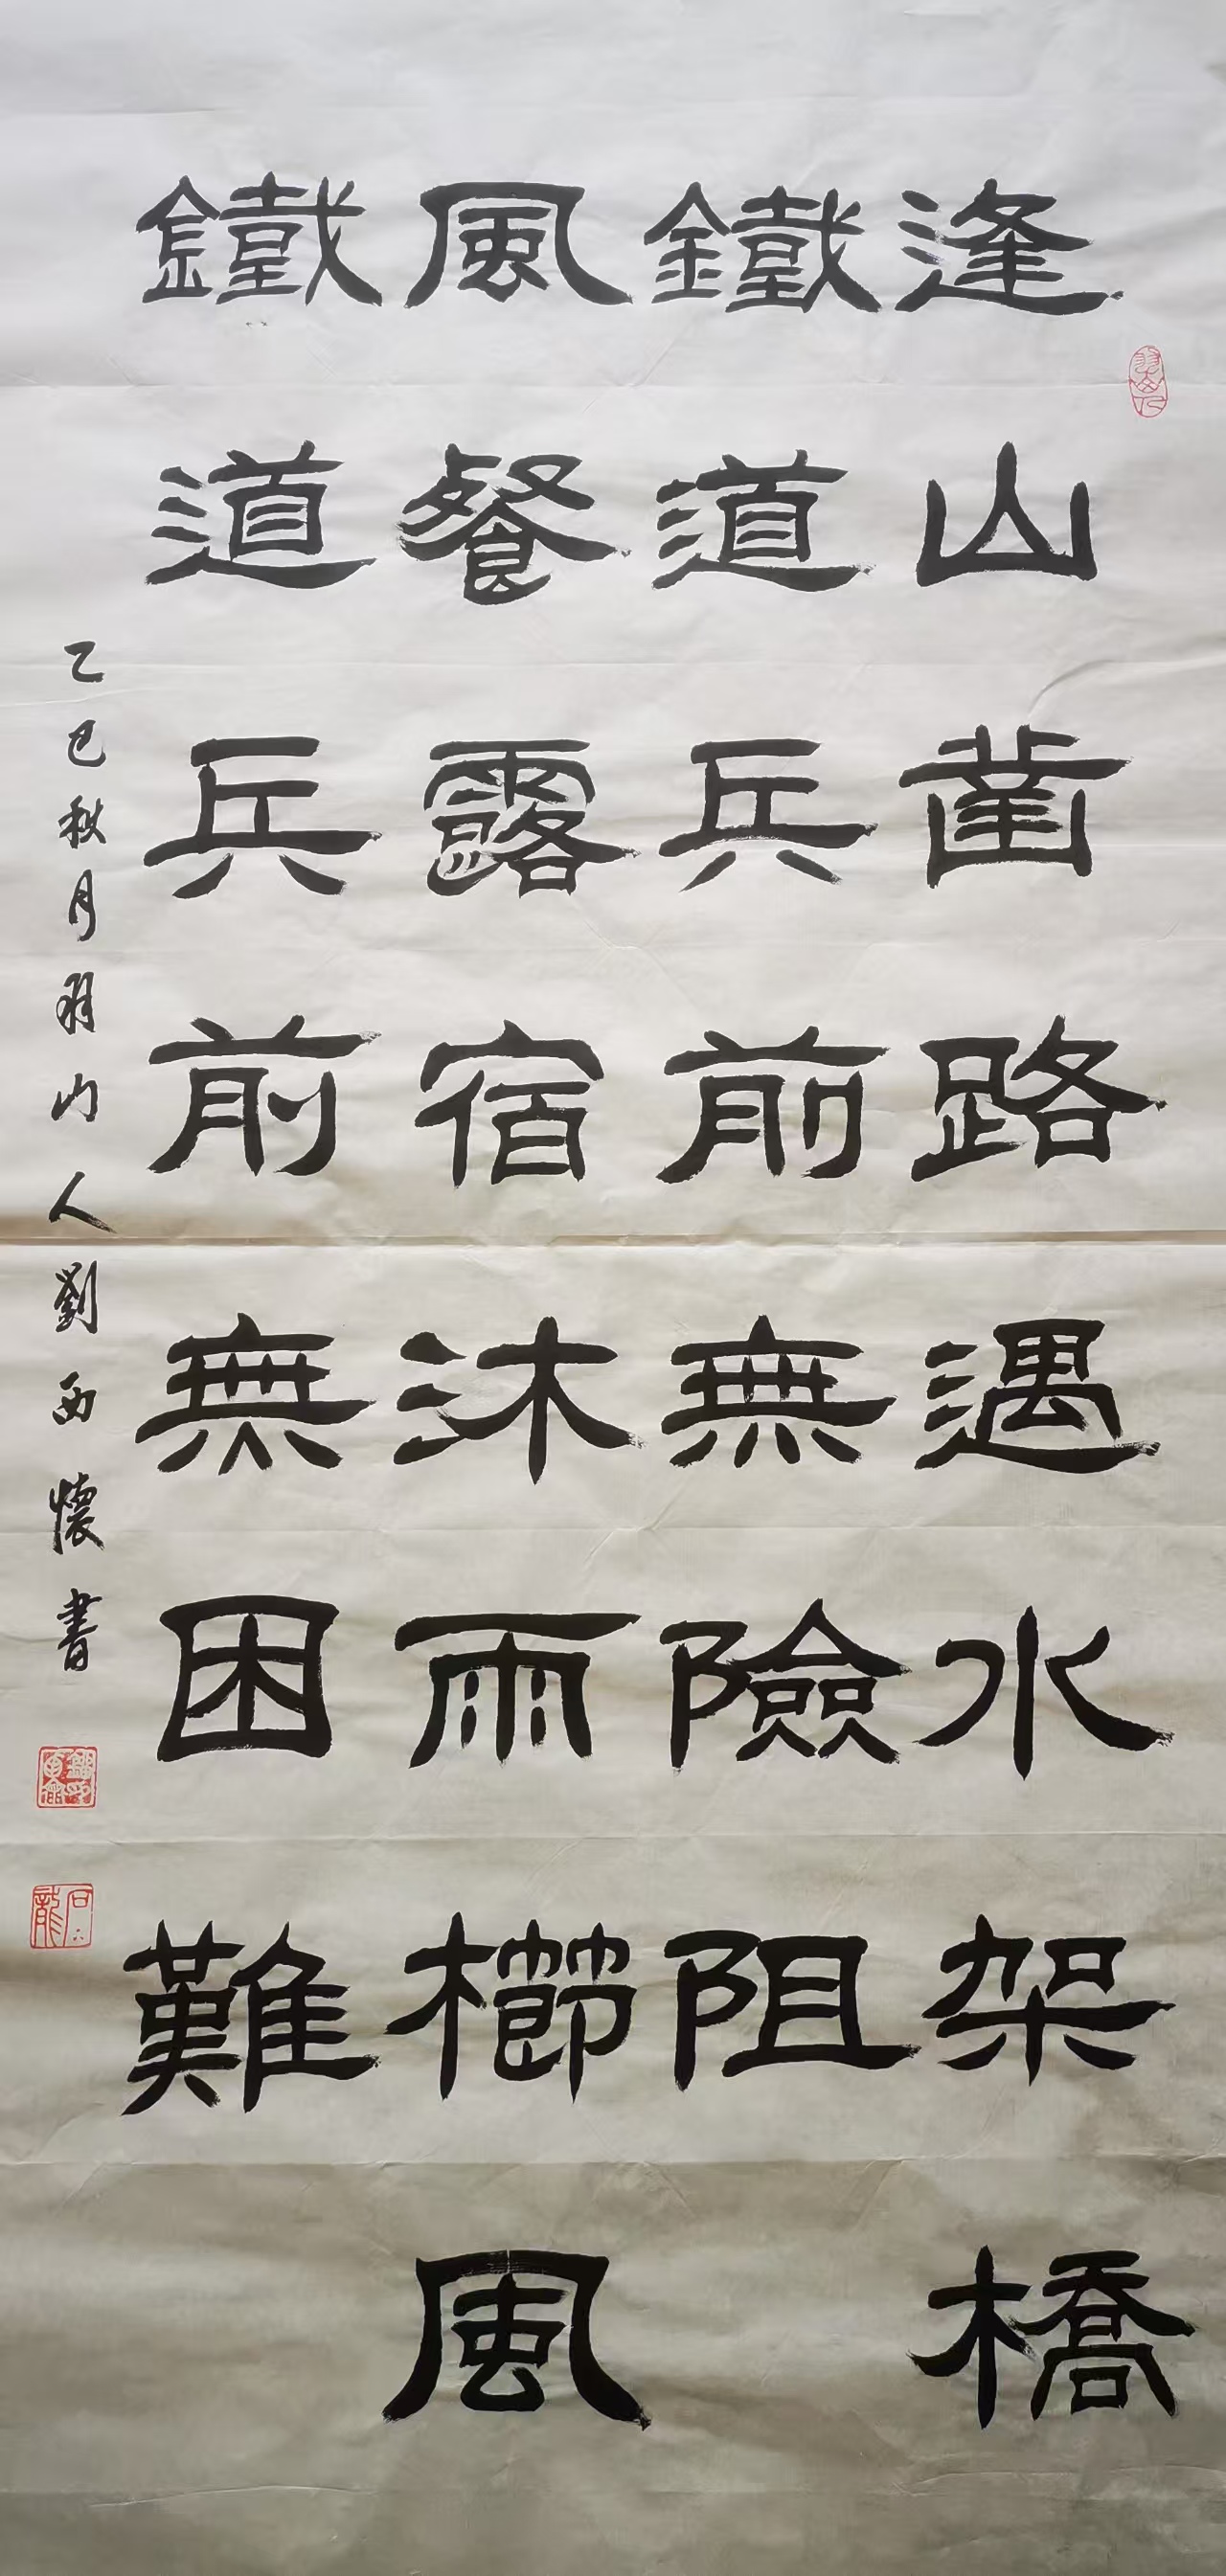 逢山凿路遇水架橋
鐵道兵前無險阻
風餐露宿沐雨櫛風
鐵道兵前無困難
乙巳秋月羽山人劉西懷書